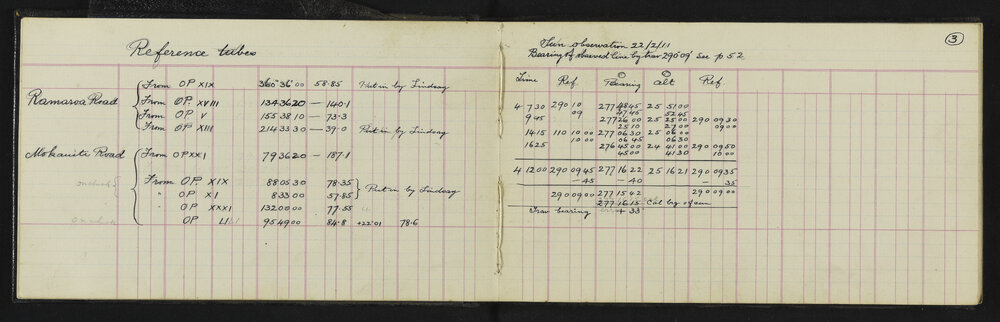 Reference tubes
From OP XIX 360°36'00 58.85 Put in by Lindsay
Ramaroa Road
From OP. XVIII 134 36 20 — 140.1
From OP V 155 38 10 — 73.3
From OP XIII 214 33 30 — 39.0 Put in by Lindsay
Mokauiti Road From OP XXI 79 36 20 — 187.1
From OP. XIX 88 05 30 78.35
Put in by Lindsay
" OP XI 8 33 00 57.85
" OP XXXI 132 00 00 77.55
OP LI 95 49 00 84.8 +22'01 78.6
3
Sun observation 22/2/11
Bearing of observed line by trav 290°09' See p 52
Time Ref Bearing alt Ref
4 7 30 290 10 277 48 45 25 51 00
09 47 45 52 45
9 45 277 26 00 25 25 00 290 09 30
25 10 27 00 09 00
14 15 110 10 00 277 06 30 25 06 00
10 00 06 45 06 30
16 25 276 45 00 24 41 00 290 09 50
45 00 41 30 10 00
4 12 00 290 09 45 277 16 22 25 16 21 290 09 35
— 45 — 40 35
290 09 00 277 15 42 290 09 00
277 16 15 Cal brg of sun
Trav bearing + 33